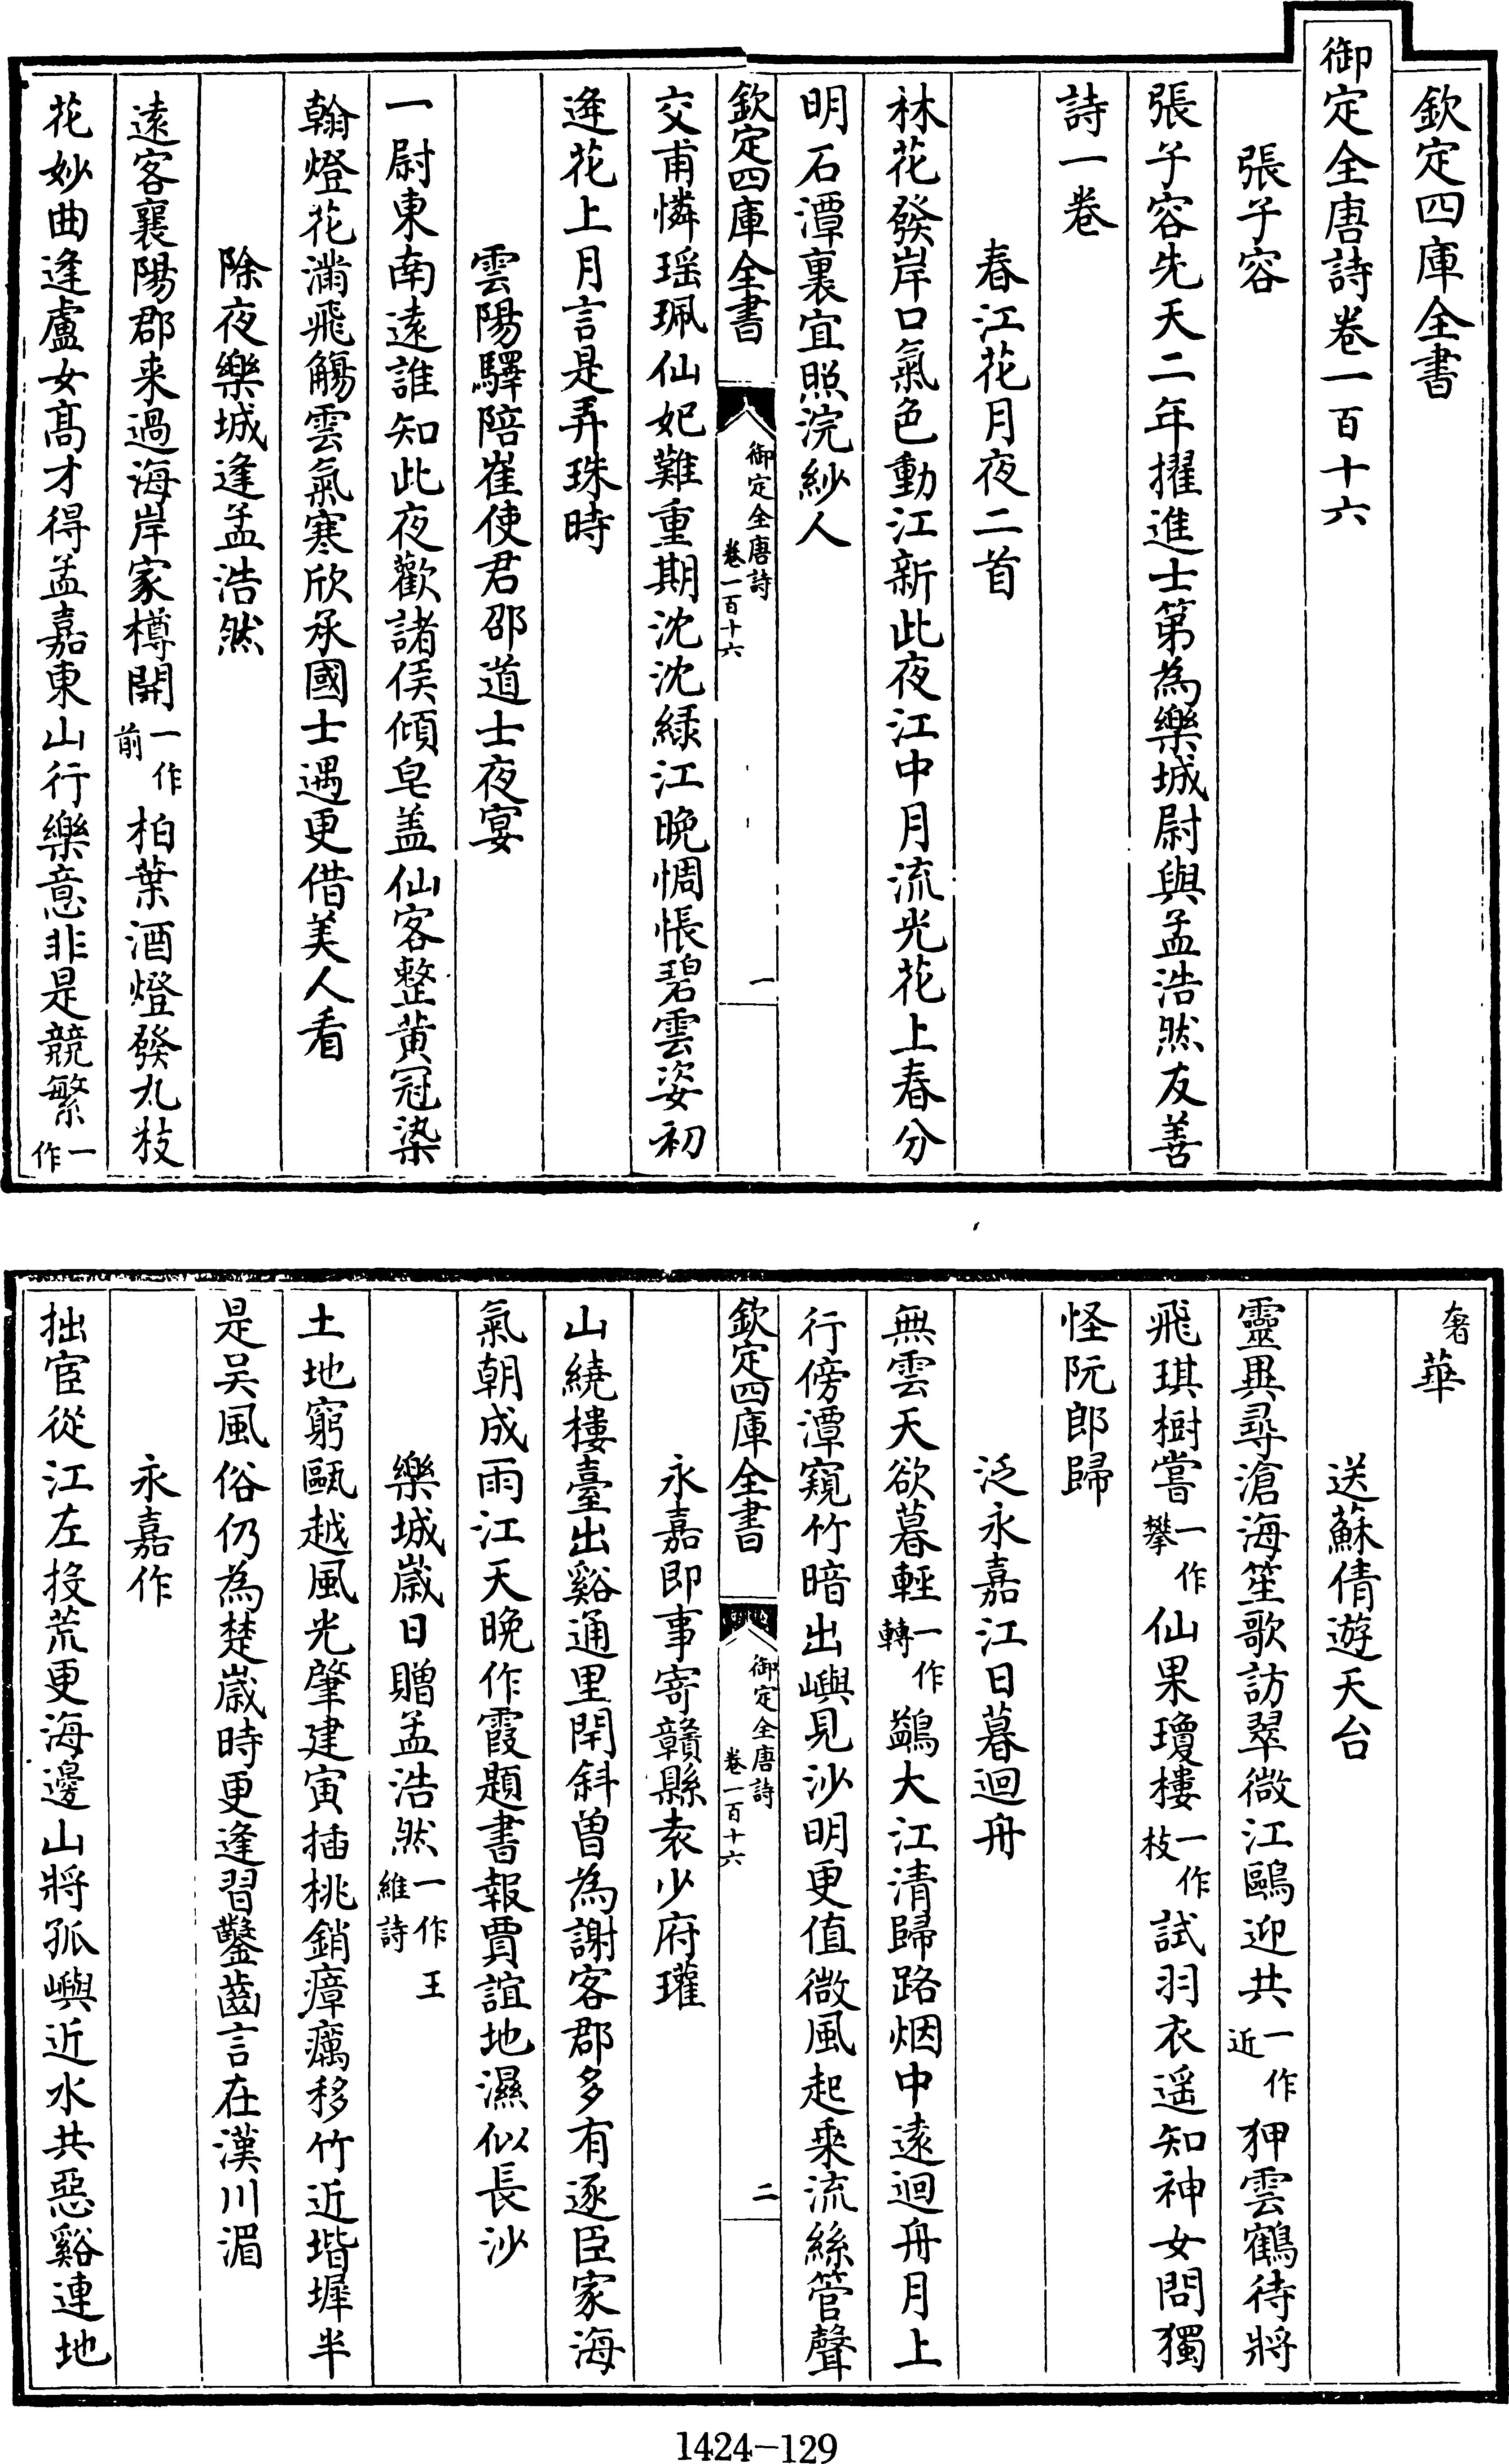 欽定四庫全書
御定全唐詩卷一百十六
張子容
張子容先天二年擢進士第為樂城尉與孟浩然友善
詩一卷
春江花月夜二首
林花發岸口氣色動江新此夜江中月流光花上春分
明石潭裏宜照浣紗人
欽定四庫全書 御定全唐詩 卷一百十六 一
交甫憐瑶珮仙妃難重期沈沈緑江晚惆悵碧雲姿初
逢花上月言是弄珠時
雲陽驛陪崔使君邵道士夜宴
一尉東南遠誰知此夜歡諸侯傾皂盖仙客整黄冠染
翰燈花滿飛觴雲氣寒欣承國士遇更借美人看
除夜樂城逢孟浩然
遠客襄陽郡来過海岸家樽開一作前柏葉酒燈發九枝
花妙曲逢盧女髙才得孟嘉東山行樂意非是競繁一作
奢華
送蘇倩遊天台
靈異尋滄海笙歌訪翠微江鷗迎共一作近狎雲鶴待將
飛琪樹嘗一作攀仙果瓊樓一作枝試羽衣遥知神女問獨
怪阮郎歸
泛永嘉江日暮迴舟
無雲天欲暮輕一作轉鷁大江清歸路烟中遠迴舟月上
行傍潭窺竹暗出嶼見沙明更值微風起乗流絲管聲
欽定四庫全書 御定全唐詩 卷一百十六 二
永嘉即事寄贛縣袁少府瓘
山繞樓臺出谿通里閈斜曽為謝客郡多有逐臣家海
氣朝成雨江天晚作霞題書報賈誼地濕似長沙
樂城歲日贈孟浩然一作王維詩
土地窮甌越風光肇建寅插桃銷瘴癘移竹近堦墀半
是吴風俗仍為楚歲時更逢習鑿齒言在漢川湄
永嘉作
拙宦從江左投荒更海邊山將孤嶼近水共惡谿連地
1424-129